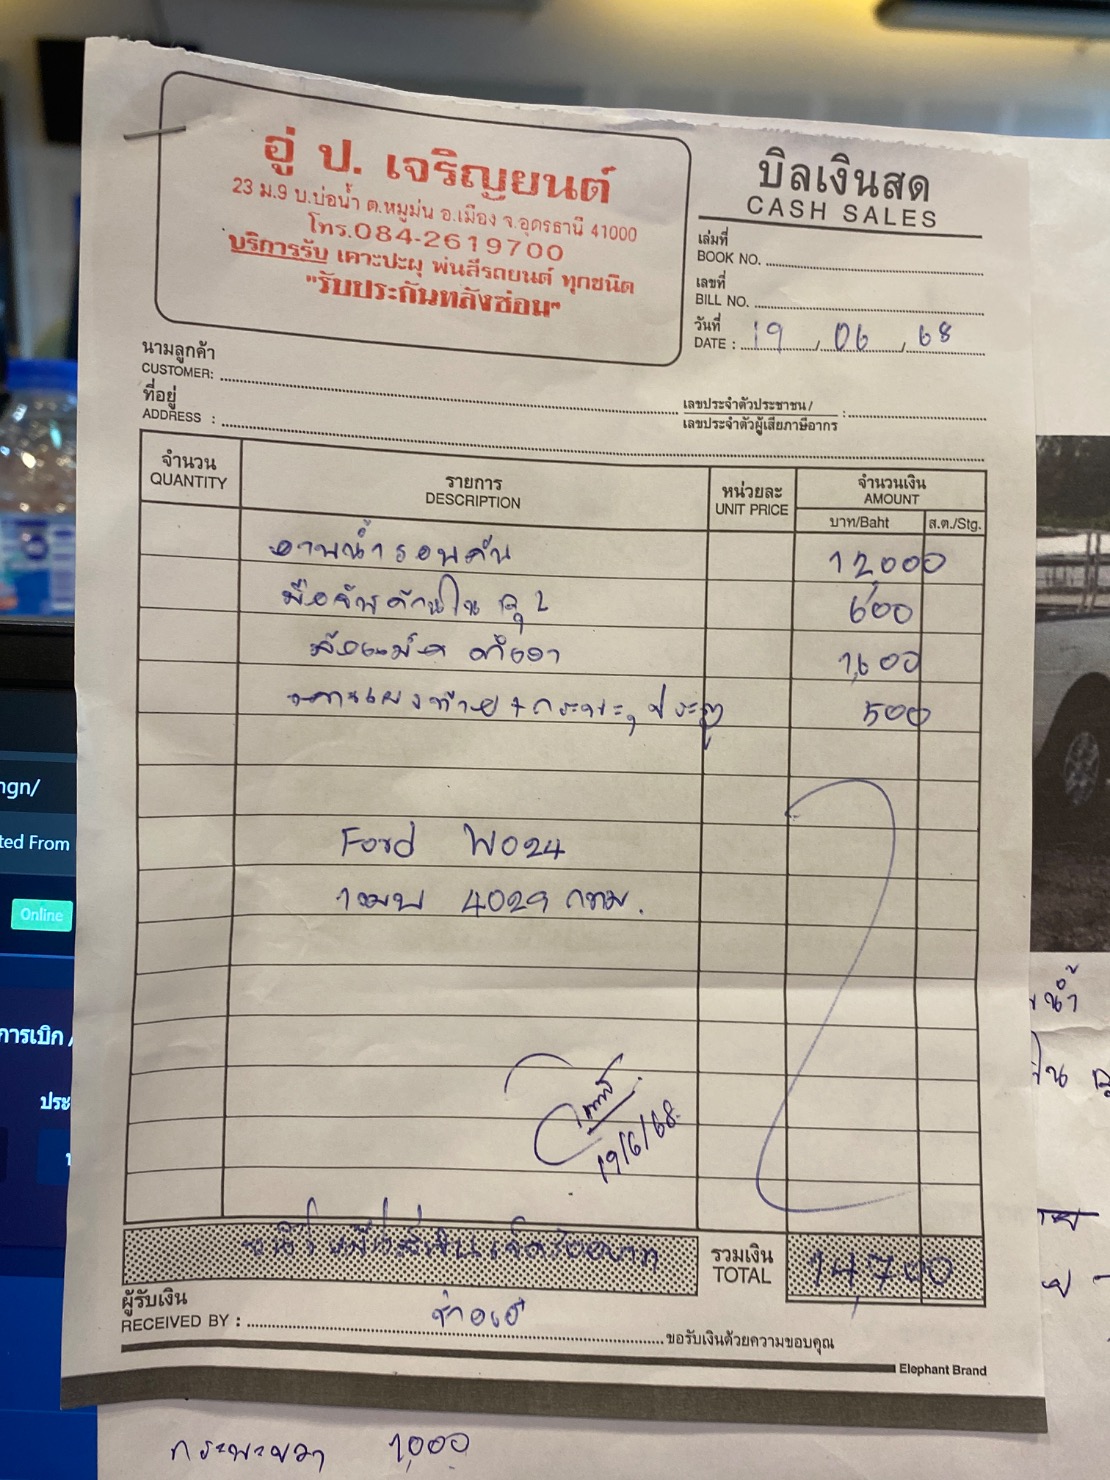 อู่ ป. เจริญยนต์
23 ม.9 บ.บ่อน้ำ ต.หมูม่น อ.เมือง จ.อุดรธานี 41000
โทร.084-2619700
บริการรับ เคาะปะผุ พ่นสีรถยนต์ ทุกชนิด
"รับประกันหลังซ่อม"
บิลเงินสด
CASH SALES
เล่มที่
BOOK NO.
เลขที่
BILL NO.
วันที่
DATE : 19 / 06 / 68
นามลูกค้า
CUSTOMER:
ที่อยู่
ADDRESS :
เลขประจำตัวประชาชน/
เลขประจำตัวผู้เสียภาษีอากร :
จำนวน
QUANTITY
รายการ
DESCRIPTION
หน่วยละ
UNIT PRICE
จำนวนเงิน
AMOUNT
บาท/Baht ส.ต./Stg.
อาบน้ำรอบคัน 12,000
มือจับด้านใน 2 600
1,600
+กระบะ, ประตู 500
Ford W024
1ฒบ 4029 กทม.
19/6/68
หนึ่งหมื่นสี่พันเจ็ดร้อยบาท
รวมเงิน
TOTAL
14,700
ผู้รับเงิน
RECEIVED BY : ช่างเอ๋
ขอรับเงินด้วยความขอบคุณ
Elephant Brand
กระบะขวา 1,000
ngn/
ted From
Online
การเบิก /
ประ
น้ำ